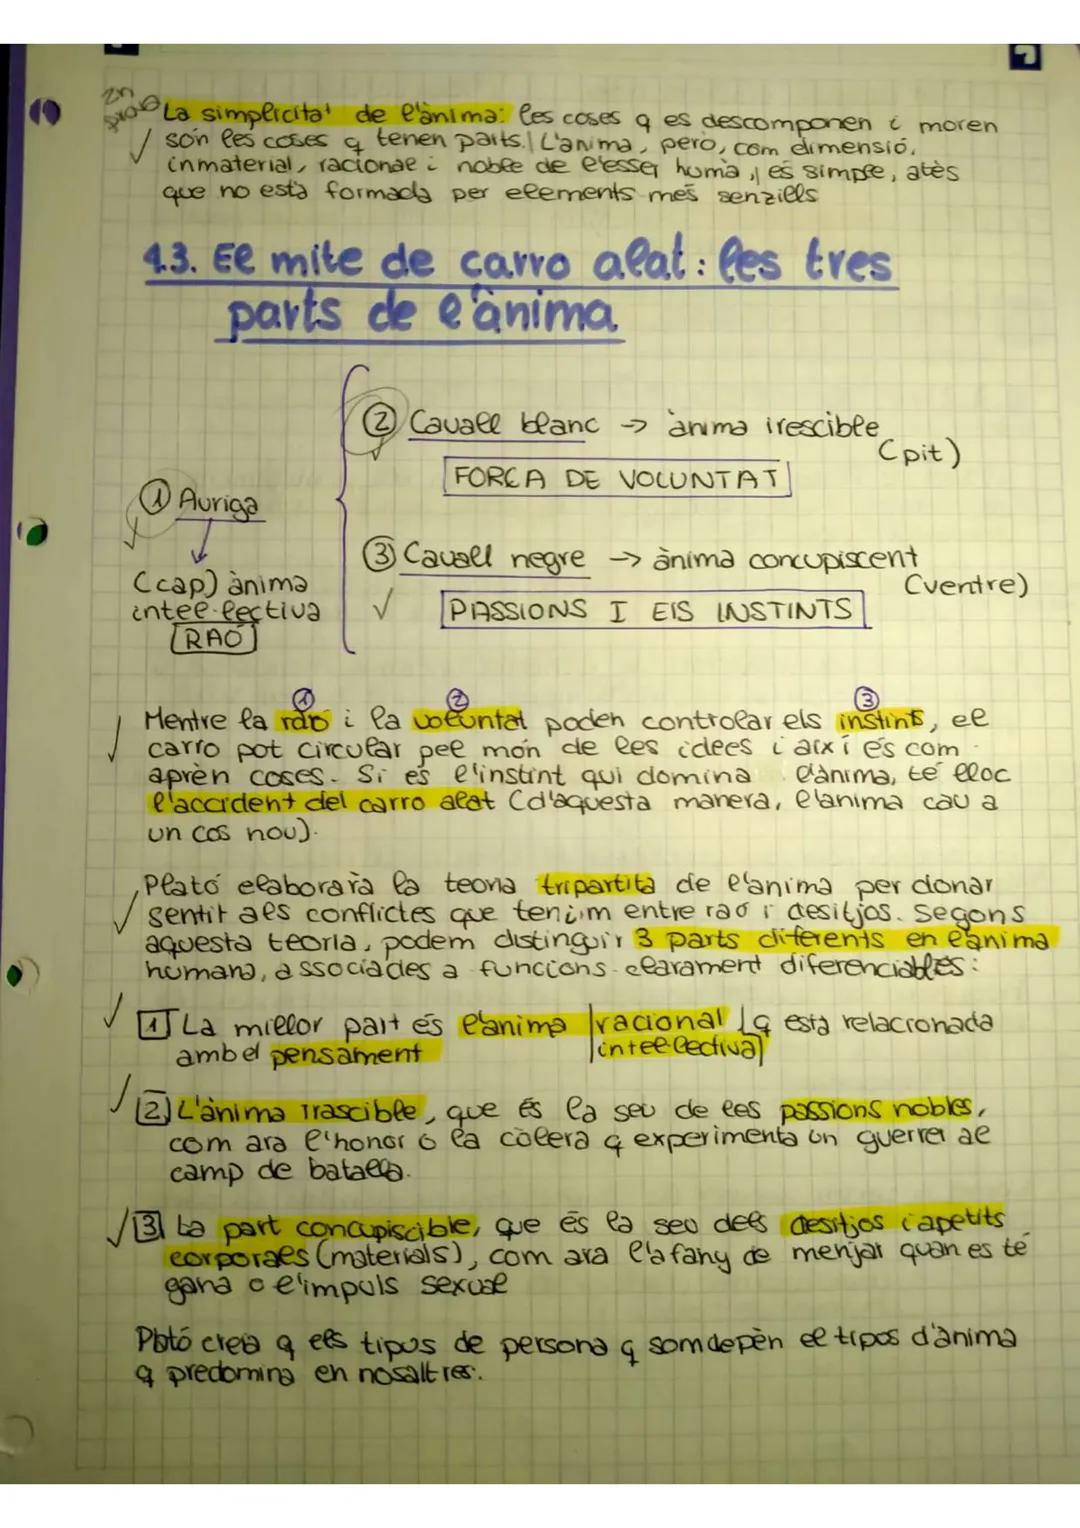 La simplicitat de l'ànima: les coses q es descomponen i moren
són les coses q tenen parts. L'ànima, però, com dimensió,
inmaterial, racional i noble de l'esser humà, és simple, atès
que no està formada per elements més senzills
4.3. El mite de carro alat: les tres
parts de l'ànima
② Cavall blanc → ànima irescible
(pit)
FORCA DE VOLUNTAT
① Auriga
③ Cavall negre → ànima concupiscent
(ventre)
(cap) ànima
intel·lectiva
PASSIONS I ElS INSTINTS
RAÓ
① ② ③
Mentre la raó i la voluntat poden controlar els instints, el
carro pot circular pel món de les idees i així és com
aprèn coses. Si és l'instint qui domina l'ànima, té lloc
l'accident del carro alat (d'aquesta manera, l'ànima cau a
un cos nou).
Plató elaborarà la teoria tripartita de l'ànima per donar
sentit als conflictes que tenim entre raó i desitjos. Segons
aquesta teoria, podem distinguir 3 parts diferents en l'ànima
humana, associades a funcions clarament diferenciables:
1 La millor part és l'ànima racional q està relacionada
intel·lectiva
amb el pensament
2 L'ànima irascible, que és la seu de les passions nobles,
com ara l'honor o la còlera q experimenta un guerrer al
camp de batalla.
3 La part concupiscible, que és la seu dels desitjos i apetits
corporals (materials), com ara l'afany de menjar quan es té
gana o l'impuls sexual
Plató creia q els tipus de persona q som depèn el tipos d'ànima
q predomina en nosaltres.